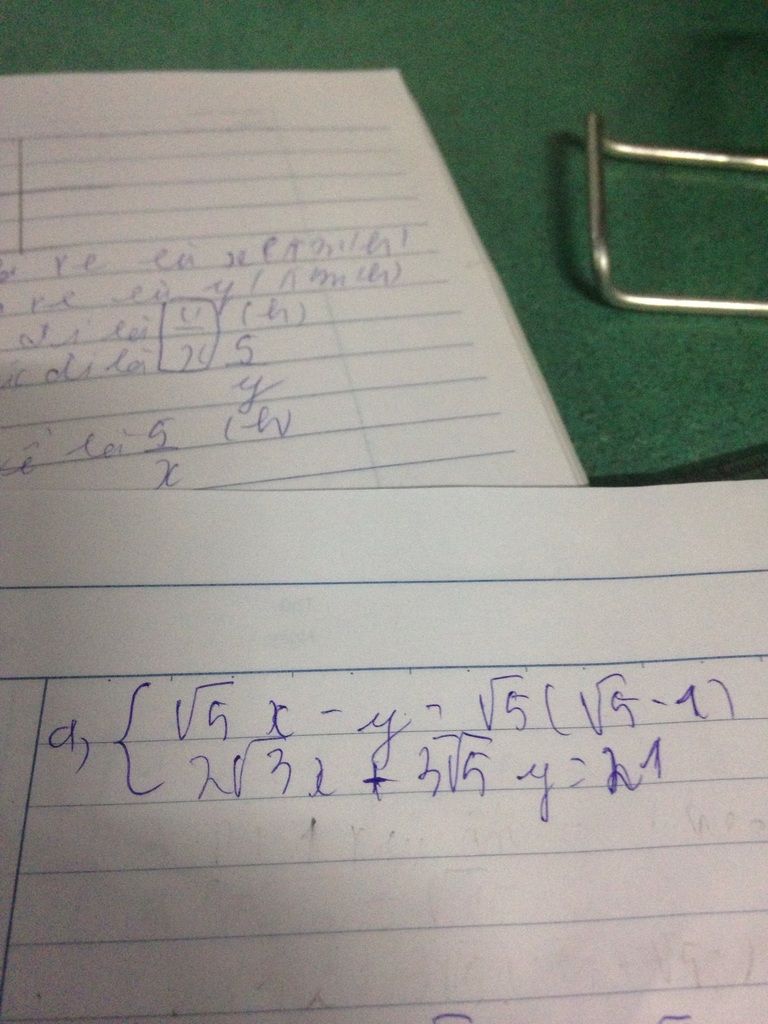 xe là x (km/h)
xe là y (km/h)
đi là (h)
đi là 5
y
là 5 (h)
x
a, { √5 x - y = √5 ( √5 - 1 )
2√3 x + 3√5 y = 21